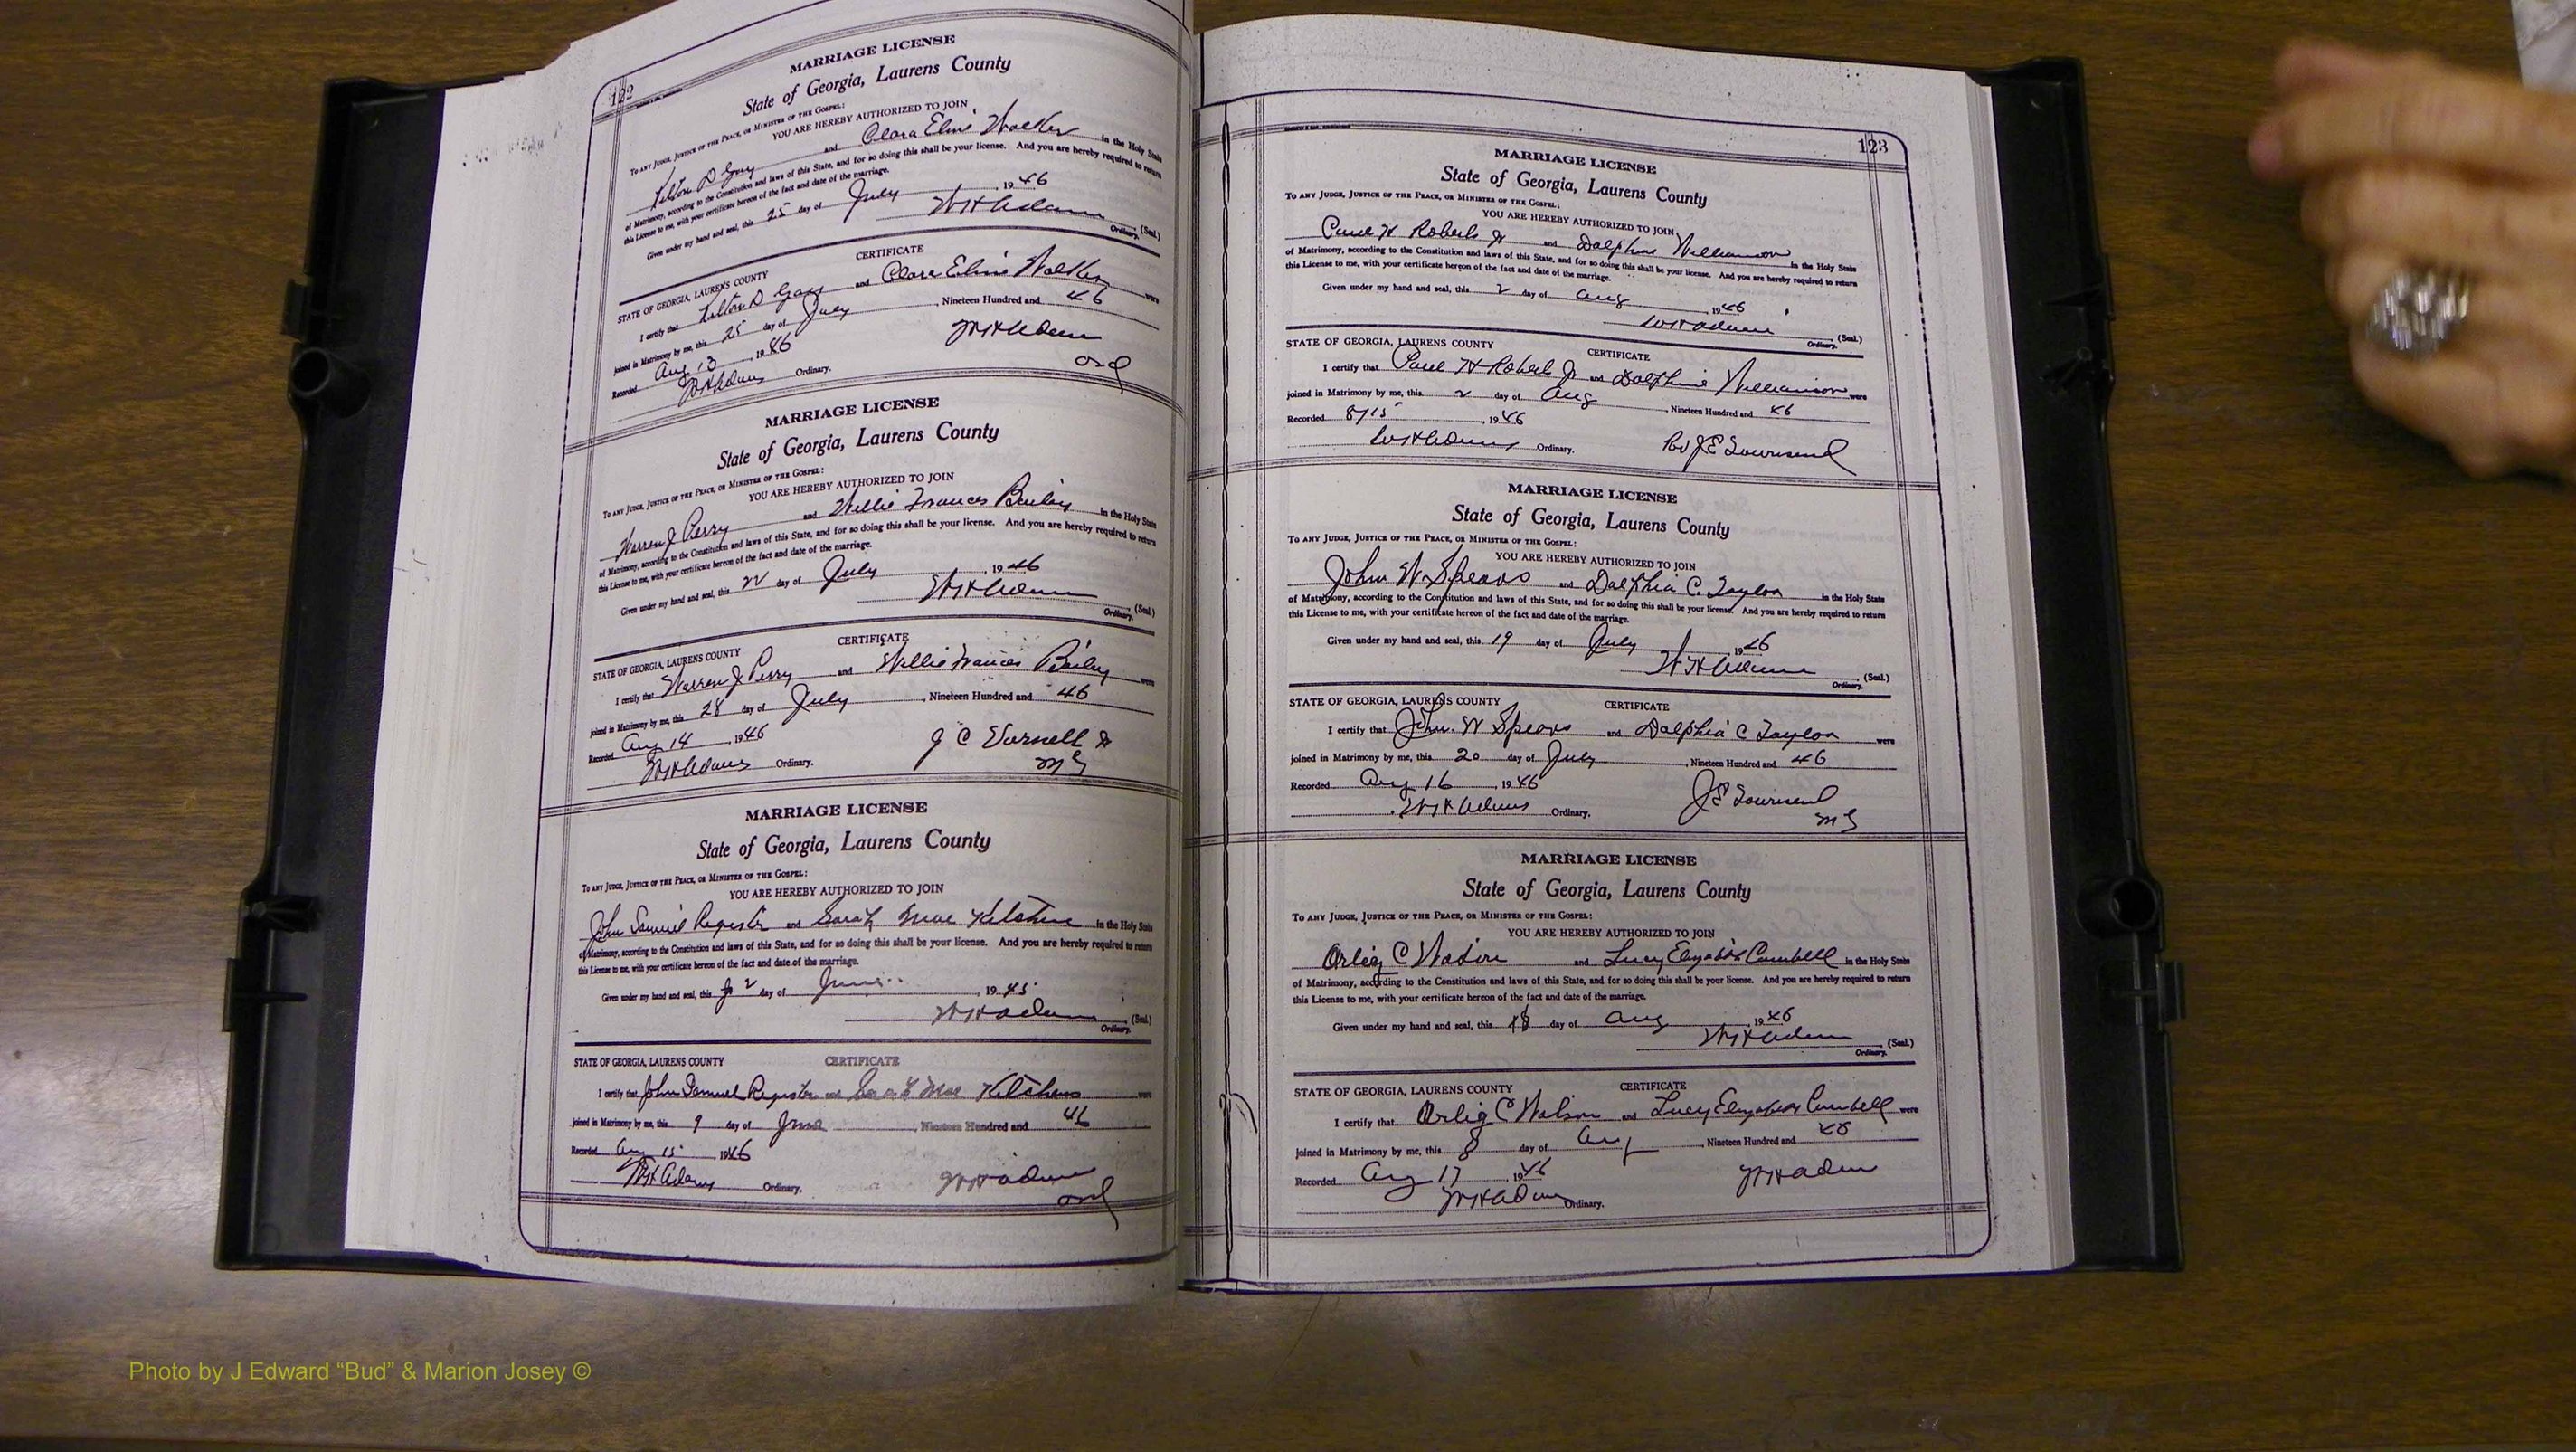 122
MARRIAGE LICENSE
State of Georgia, Laurens County
TO ANY JUDGE, JUSTICE OF THE PEACE, OR MINISTER OF THE GOSPEL:
YOU ARE HEREBY AUTHORIZED TO JOIN
and Clara Walker in the Holy State
of Matrimony, according to the Constitution and laws of this State, and for so doing this shall be your license. And you are hereby required to return
this License to me, with your certificate hereon of the fact and date of the marriage.
Given under my hand and seal, this 25 day of July, 1946
W H Adams (Seal.)
Ordinary.
STATE OF GEORGIA, LAURENS COUNTY CERTIFICATE
I certify that and Clara Walker were
joined in Matrimony by me, this 25 day of July, Nineteen Hundred and 46
Recorded Aug 13, 1946 W H Adams
W H Adams Ordinary. ord
MARRIAGE LICENSE
State of Georgia, Laurens County
TO ANY JUDGE, JUSTICE OF THE PEACE, OR MINISTER OF THE GOSPEL:
YOU ARE HEREBY AUTHORIZED TO JOIN
Warren J Perry and Willie Frances Bailey in the Holy State
of Matrimony, according to the Constitution and laws of this State, and for so doing this shall be your license. And you are hereby required to return
this License to me, with your certificate hereon of the fact and date of the marriage.
Given under my hand and seal, this 22 day of July, 1946
W H Adams (Seal.)
Ordinary.
STATE OF GEORGIA, LAURENS COUNTY CERTIFICATE
I certify that Warren J Perry and Willie Frances Bailey were
joined in Matrimony by me, this 28 day of July, Nineteen Hundred and 46
Recorded Aug 14, 1946 J C Varnell Jr
W H Adams Ordinary. M G
MARRIAGE LICENSE
State of Georgia, Laurens County
TO ANY JUDGE, JUSTICE OF THE PEACE, OR MINISTER OF THE GOSPEL:
YOU ARE HEREBY AUTHORIZED TO JOIN
John Samuel Register and Sarah in the Holy State
of Matrimony, according to the Constitution and laws of this State, and for so doing this shall be your license. And you are hereby required to return
this License to me, with your certificate hereon of the fact and date of the marriage.
Given under my hand and seal, this 2 day of June, 1945
W H Adams (Seal.)
Ordinary.
STATE OF GEORGIA, LAURENS COUNTY CERTIFICATE
I certify that John Samuel Register and Sarah Kitchens were
joined in Matrimony by me, this 9 day of June, Nineteen Hundred and 46
Recorded Aug 15, 1946 W H Adams
W H Adams Ordinary. ord
123
MARRIAGE LICENSE
State of Georgia, Laurens County
TO ANY JUDGE, JUSTICE OF THE PEACE, OR MINISTER OF THE GOSPEL:
YOU ARE HEREBY AUTHORIZED TO JOIN
Paul H Roberts Jr and Dalphine Williamson in the Holy State
of Matrimony, according to the Constitution and laws of this State, and for so doing this shall be your license. And you are hereby required to return
this License to me, with your certificate hereon of the fact and date of the marriage.
Given under my hand and seal, this 2 day of Aug, 1946
W H Adams (Seal.)
Ordinary.
STATE OF GEORGIA, LAURENS COUNTY CERTIFICATE
I certify that Paul H Roberts Jr and Dalphine Williamson were
joined in Matrimony by me, this 2 day of Aug, Nineteen Hundred and 46
Recorded 8/15, 1946
W H Adams Ordinary. Rev J E Townsend
MARRIAGE LICENSE
State of Georgia, Laurens County
TO ANY JUDGE, JUSTICE OF THE PEACE, OR MINISTER OF THE GOSPEL:
YOU ARE HEREBY AUTHORIZED TO JOIN
John W Spears and Dalphia C Taylor in the Holy State
of Matrimony, according to the Constitution and laws of this State, and for so doing this shall be your license. And you are hereby required to return
this License to me, with your certificate hereon of the fact and date of the marriage.
Given under my hand and seal, this 19 day of July, 1946
W H Adams (Seal.)
Ordinary.
STATE OF GEORGIA, LAURENS COUNTY CERTIFICATE
I certify that John W Spears and Dalphia C Taylor were
joined in Matrimony by me, this 20 day of July, Nineteen Hundred and 46
Recorded Aug 16, 1946 J E Townsend
W H Adams Ordinary. M G
MARRIAGE LICENSE
State of Georgia, Laurens County
TO ANY JUDGE, JUSTICE OF THE PEACE, OR MINISTER OF THE GOSPEL:
YOU ARE HEREBY AUTHORIZED TO JOIN
C and Lucy in the Holy State
of Matrimony, according to the Constitution and laws of this State, and for so doing this shall be your license. And you are hereby required to return
this License to me, with your certificate hereon of the fact and date of the marriage.
Given under my hand and seal, this 8 day of Aug, 1946
W H Adams (Seal.)
Ordinary.
STATE OF GEORGIA, LAURENS COUNTY CERTIFICATE
I certify that C Watson and Lucy were
joined in Matrimony by me, this 8 day of Aug, Nineteen Hundred and
Recorded Aug 17, 1946 W H Adams
W H Adams Ordinary.
Photo by J Edward “Bud” & Marion Josey ©